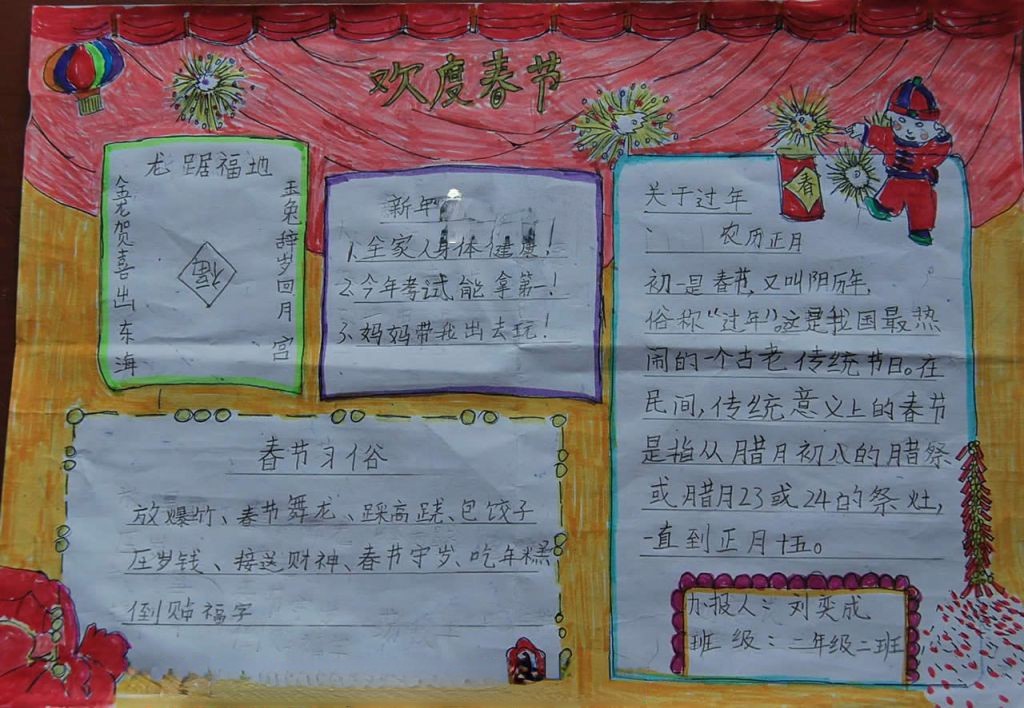 欢度春节
龙踞福地
金龙贺喜出东海
玉兔辞岁回月宫
福
新年
1.全家人身体健康！
2.今年考试能拿第一！
3.妈妈带我出去玩！
春节习俗
放爆竹、春节舞龙、踩高跷、包饺子
压岁钱、接送财神、春节守岁、吃年糕
倒贴福字
春
关于过年
农历正月
初一是春节，又叫阴历年，
俗称“过年”。这是我国最热
闹的一个古老传统节日。在
民间，传统意义上的春节
是指从腊月初八的腊祭
或腊月23或24的祭灶，
一直到正月十五。
办报人：刘奕成
班级：二年级二班